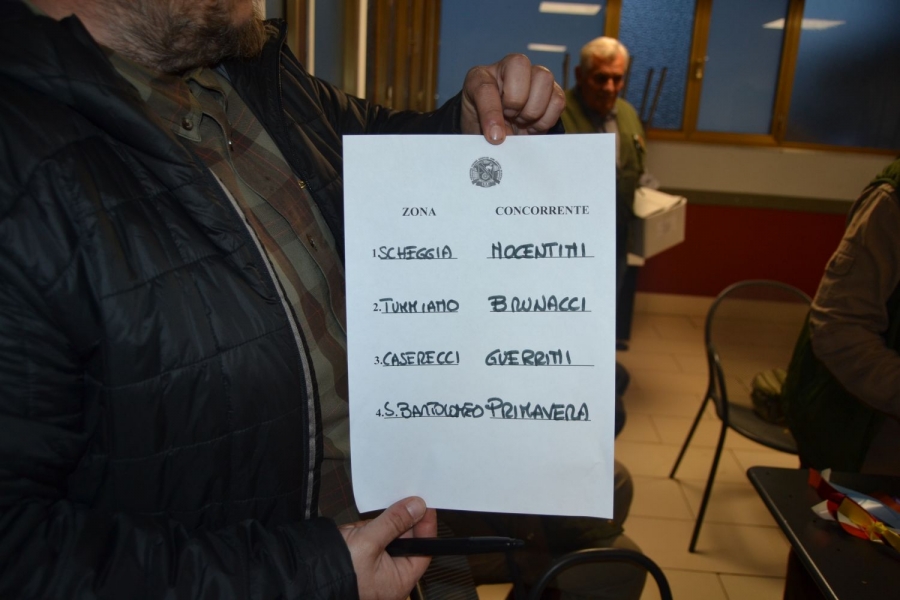 ZONA CONCORRENTE
1. SCHEGGIA NOCENTINI
2. TURRIANO BRUNACCI
3. CASERECCI GUERRINI
4. S. BARTOLOMEO PRIMAVERA